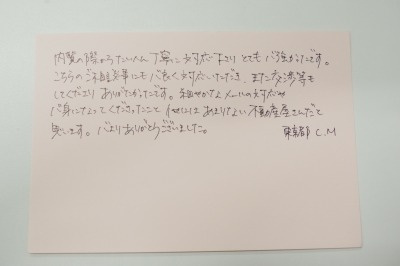 内覧の際からたいへん丁寧に対応下さり とても心強かったです。
こちらのご相談事にも心良く対応いただき、また交渉等も
してくださり ありがたかったです。細やかなメールの対応や
心身になってくださったこと 他にはあまりない不動産屋さんだと
思います。心よりありがとうございました。
東京都 C.M